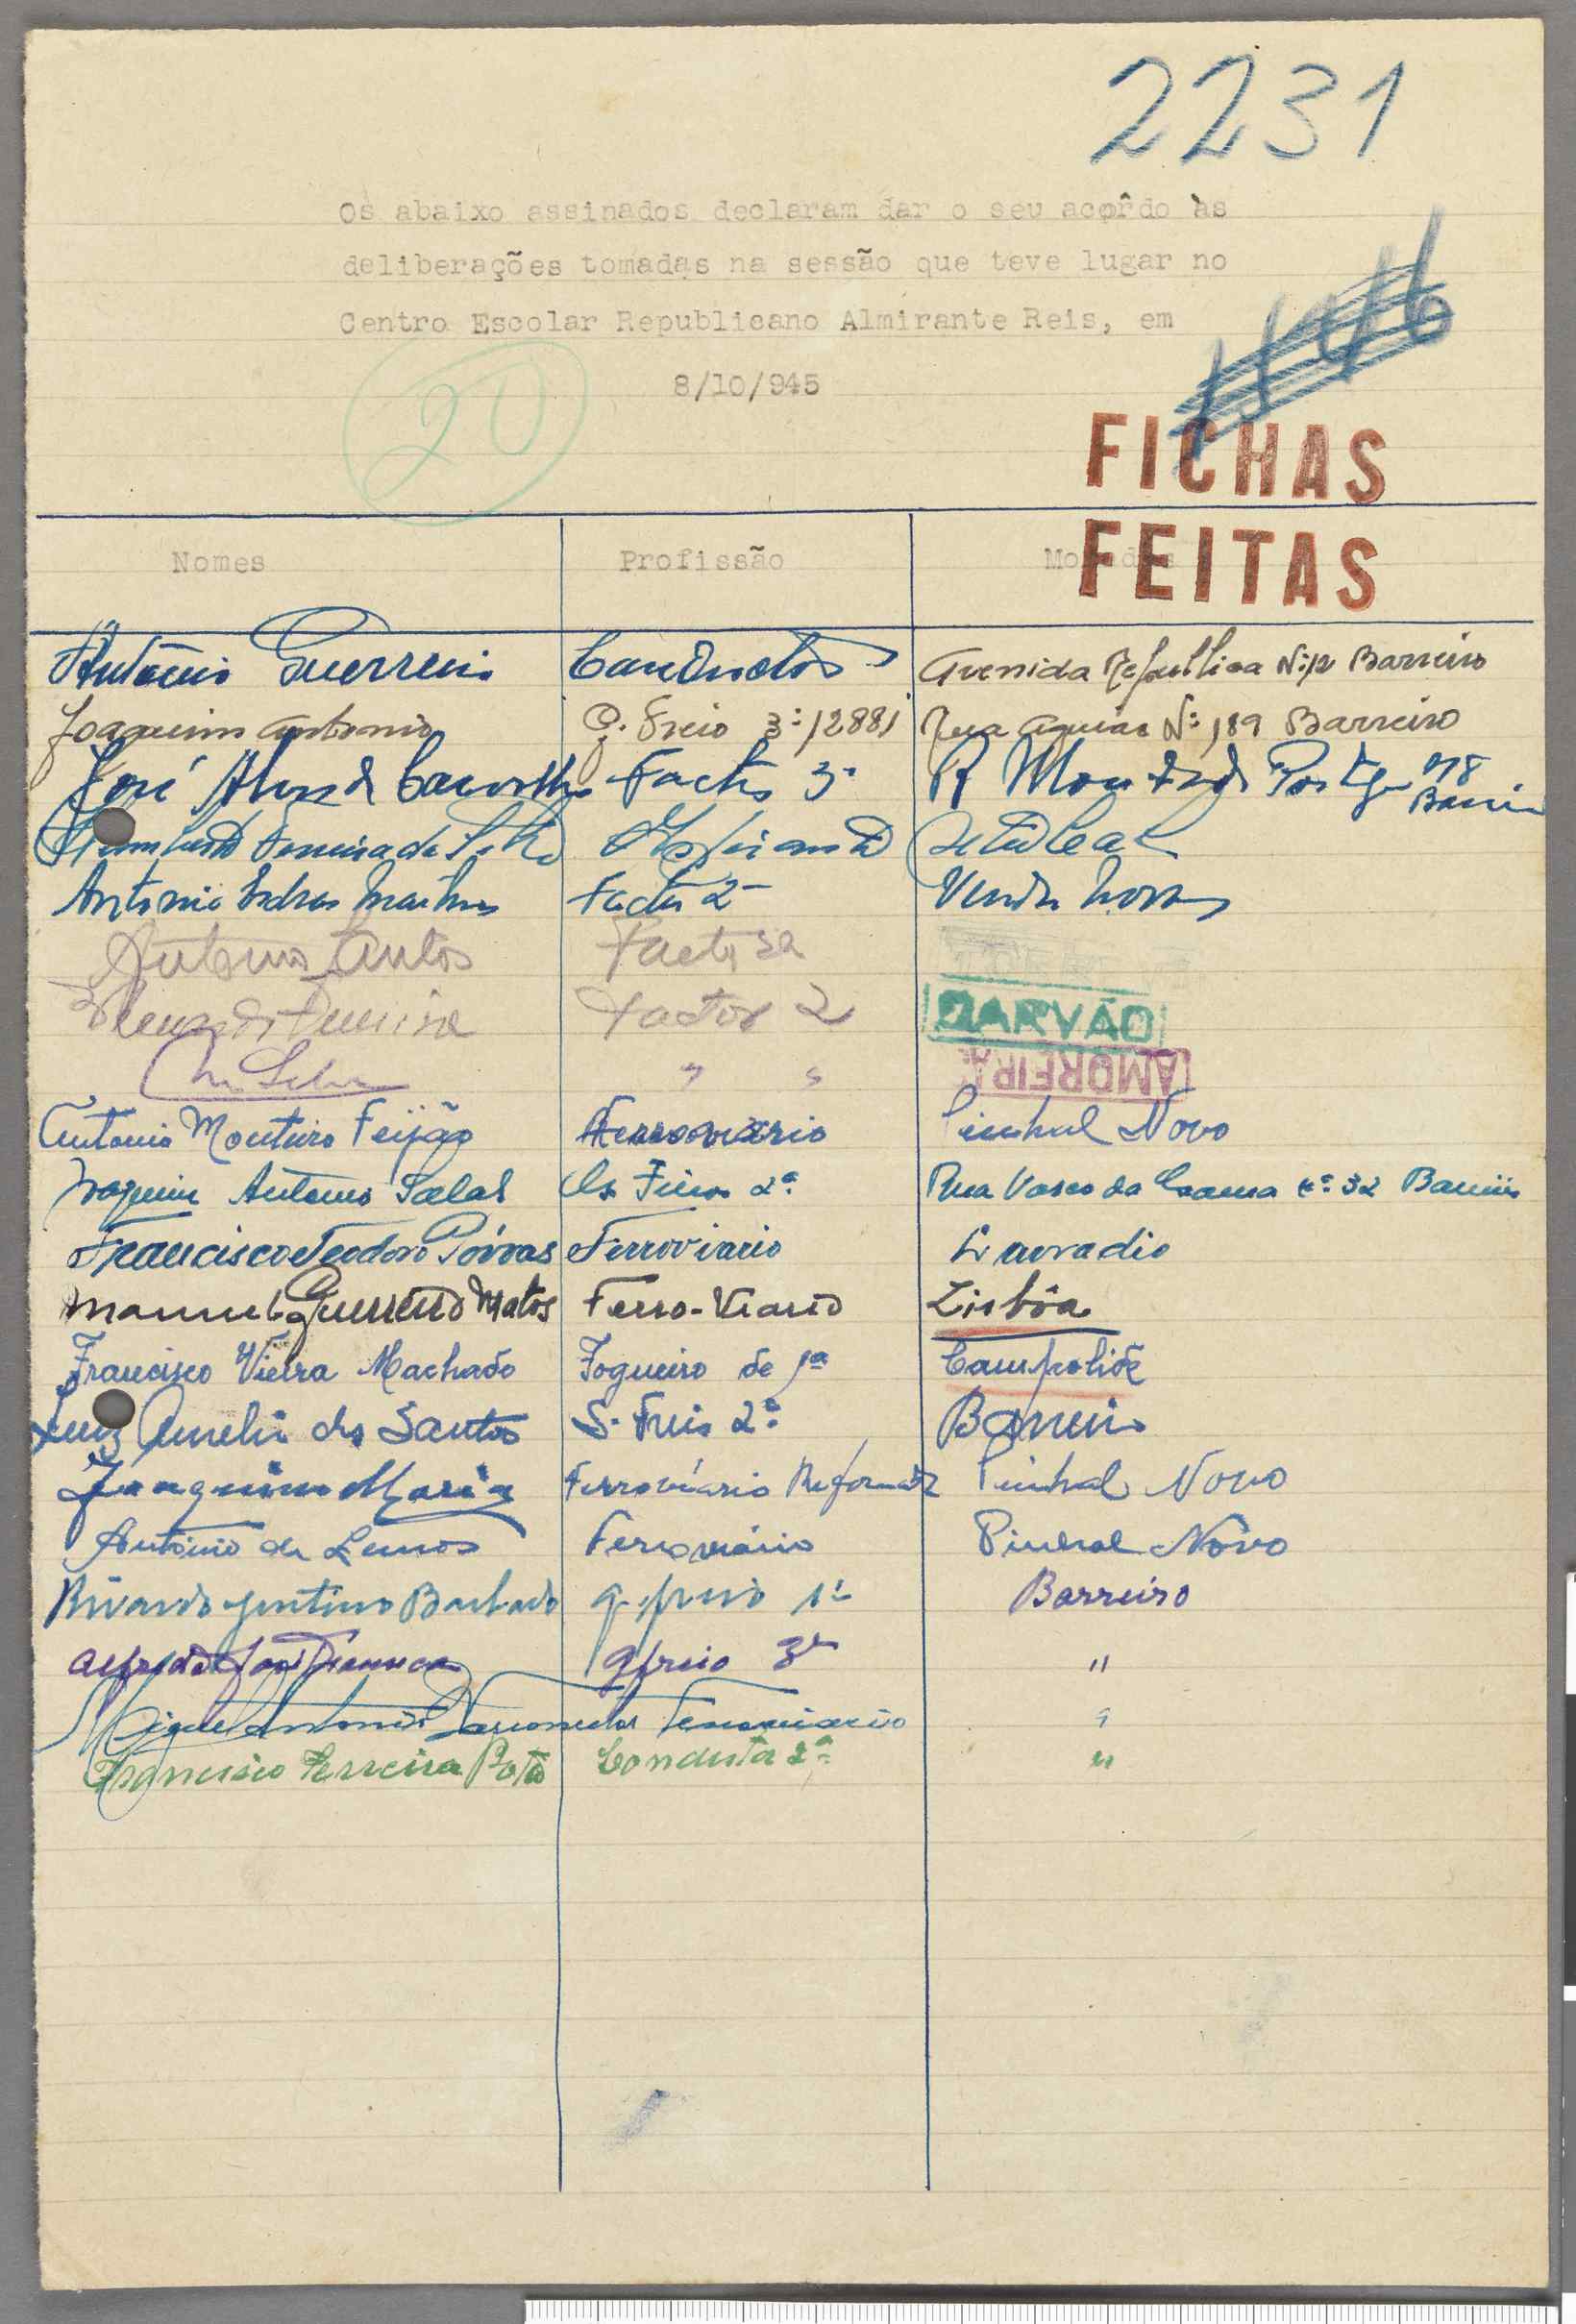 2231
Os abaixo assinados declaram dar o seu acôrdo às
deliberações tomadas na sessão que teve lugar no
Centro Escolar Republicano Almirante Reis, em
8/10/945
20
FICHAS
FEITAS
Nomes Profissão
António Guerreiro Conductor Avenida Republica Nº 12 Barreiro
Joaquim Antonio G. Freio 3ª 12881 Rua Aguiar Nº 189 Barreiro
José Alves de Carvalho Factor 3ª R
Ferreira da Setubal
Antonio Factor 2ª Vendas Novas
Antonio Santos Factor 3ª
Ferreira Factor 2
GARVÃO
Silva " " AMOREIRA
Antonio Monteiro Feijão Ferroviario Pinhal Novo
Joaquim Antonio Salas 2ª Rua Vasco da Gama nº 32 Barreiro
Francisco Teodoro Póvoas Ferroviario Lavradio
Manuel Guerreiro Matos Ferro-Viario Lisbôa
Francisco Vieira Machado Fogueiro de 1ª Campolide
Luiz Amelio dos Santos 2ª Barreiro
Joaquim Maria Ferroviário Reformado Pinhal Novo
António de Lemos Ferroviário Pinhal Novo
Ricardo Barbado g. freio 1ª Barreiro
Alfredo José g freio 3ª "
Miguel Antonio Ferroviario "
Francisco Ferreira Bôto Condutor 2ª "